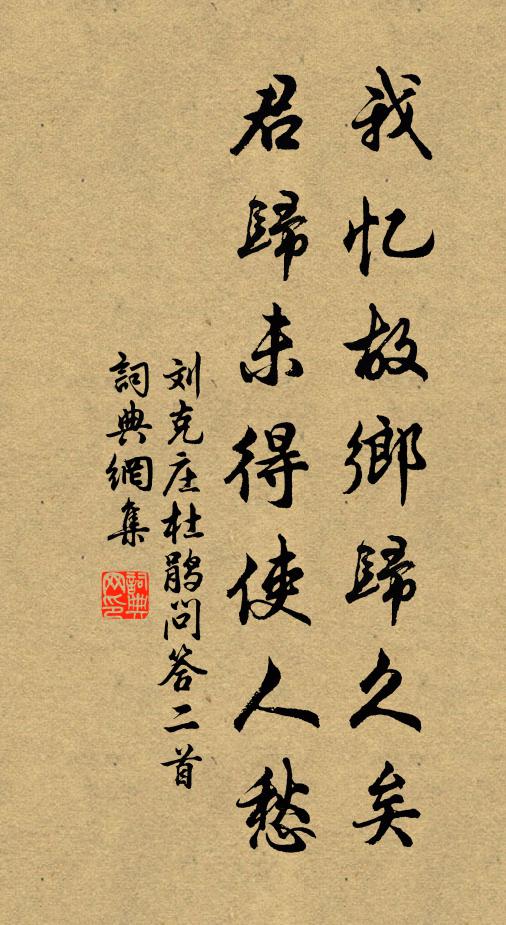 我忆故鄉歸久矣
君歸未得使人愁
刘克庄杜鹃问答二首
詞典網集
詞典网印